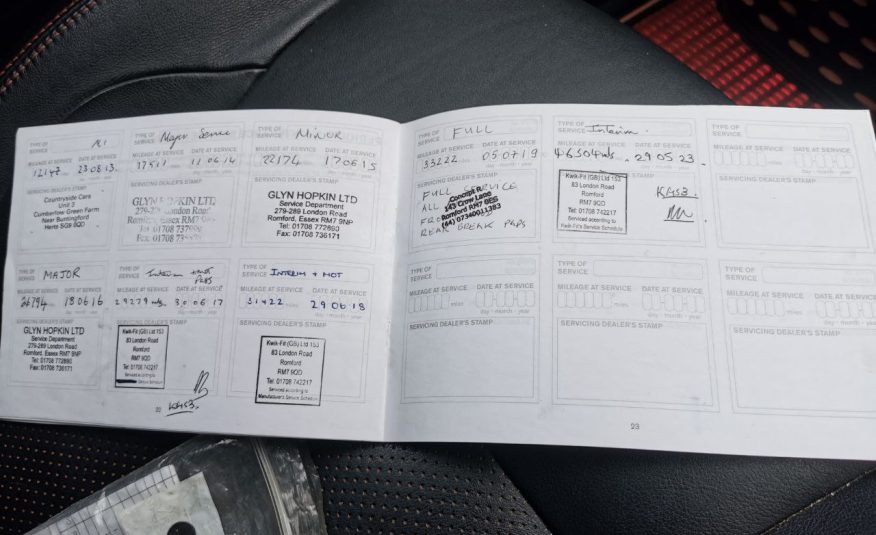 TYPE OF SERVICE M1
MILEAGE AT SERVICE DATE AT SERVICE
12147 23.08.13.
SERVICING DEALER'S STAMP
Countryside Cars
Unit 3
Cumberlow Green Farm
Near Buntingford
Herts SG9 0QD
TYPE OF SERVICE Major Service
MILEAGE AT SERVICE DATE AT SERVICE
17511 11 06 14
miles day - month - year
SERVICING DEALER'S STAMP
GLYN HOPKIN LTD
Service Department
279-289 London Road
Romford, Essex RM7 9NP
TYPE OF SERVICE MINOR
MILEAGE AT SERVICE DATE AT SERVICE
22174 17 06 15
miles day - month - year
SERVICING DEALER'S STAMP
GLYN HOPKIN LTD
Service Department
279-289 London Road
Romford, Essex RM7 9NP
Tel: 01708 772893
Fax: 01708 736171
TYPE OF SERVICE MAJOR
MILEAGE AT SERVICE DATE AT SERVICE
26794 13 06 16
miles day - month - year
SERVICING DEALER'S STAMP
GLYN HOPKIN LTD
Service Department
279-289 London Road
Romford, Essex RM7 9NP
Tel: 01708 772893
Fax: 01708 736171
TYPE OF SERVICE Interim + MOT
MILEAGE AT SERVICE DATE AT SERVICE
29279 mls. 30 06 17
day - month - year
SERVICING DEALER'S STAMP
Kwik-Fit (GB) Ltd 153
83 London Road
Romford
RM7 9QD
Tel: 01708 742217
Serviced according to
Service Schedule
TYPE OF SERVICE INTERIM + MOT
MILEAGE AT SERVICE DATE AT SERVICE
31422 29 06 18
miles day - month - year
SERVICING DEALER'S STAMP
Kwik-Fit (GB) Ltd 153
83 London Road
Romford
RM7 9QD
Tel: 01708 742217
Serviced according to
Manufacturer's Service Schedule
22
TYPE OF SERVICE FULL
MILEAGE AT SERVICE DATE AT SERVICE
33222 05 07 19
miles day - month - year
SERVICING DEALER'S STAMP
FULL SERVICE
ALL
REAR BREAK PADS
Concept R
143 Crow Lane
Romford RM7 0ES
(44) 07340011383
TYPE OF SERVICE Interim.
MILEAGE AT SERVICE DATE AT SERVICE
46504 mls. 29 05 23.
day - month - year
SERVICING DEALER'S STAMP
Kwik-Fit (GB) Ltd 153
83 London Road
Romford
RM7 9QD
Tel: 01708 742217
Serviced according to
Kwik-Fit's Service Schedule
TYPE OF SERVICE
MILEAGE AT SERVICE DATE AT SERVICE
miles day - month - year
SERVICING DEALER'S STAMP
TYPE OF SERVICE
MILEAGE AT SERVICE DATE AT SERVICE
miles day - month - year
SERVICING DEALER'S STAMP
TYPE OF SERVICE
MILEAGE AT SERVICE DATE AT SERVICE
miles day - month - year
SERVICING DEALER'S STAMP
TYPE OF SERVICE
MILEAGE AT SERVICE DATE AT SERVICE
miles day - month - year
SERVICING DEALER'S STAMP
23